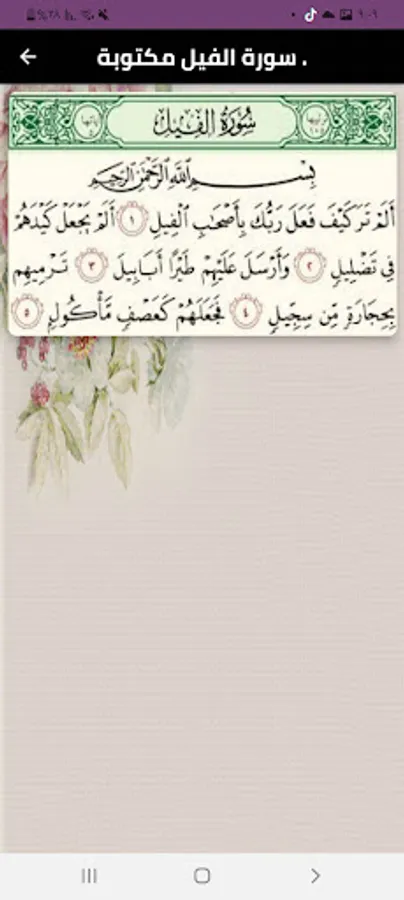 ٩:٠٩
٪٢٨
. سورة الفيل مكتوبة
سُورَةُ الفِيلِ
بِسْمِ ٱللَّهِ ٱلرَّحْمَٰنِ ٱلرَّحِيمِ
أَلَمْ تَرَ كَيْفَ فَعَلَ رَبُّكَ بِأَصْحَٰبِ ٱلْفِيلِ ١ أَلَمْ يَجْعَلْ كَيْدَهُمْ
فِي تَضْلِيلٍ ٢ وَأَرْسَلَ عَلَيْهِمْ طَيْرًا أَبَابِيلَ ٣ تَرْمِيهِم
بِحِجَارَةٍ مِّن سِجِّيلٍ ٤ فَجَعَلَهُمْ كَعَصْفٍ مَّأْكُولٍ ٥